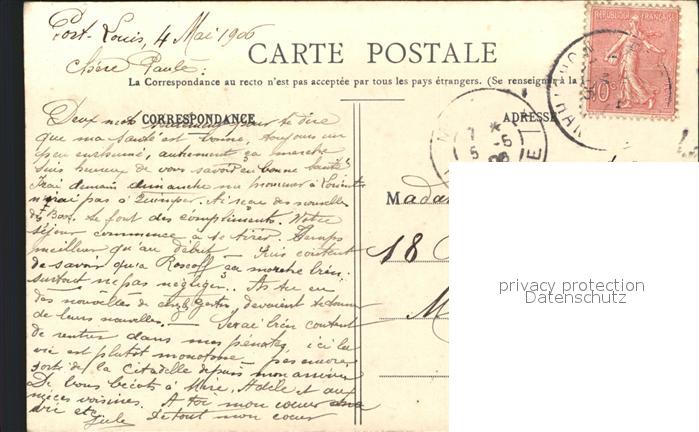 Port-Louis, 4 Mai 1906
Chère Paule:
CARTE POSTALE
La Correspondance au recto n'est pas acceptée par tous les pays étrangers. (Se renseigner à la
RÉPUBLIQUE FRANÇAISE
10c
CORRESPONDANCE
ADRESSE
Deux mots pour te dire
que ma santé est bonne, toujours un
peu enrhumé, autrement ça marche
Suis heureux de vous savoir en bonne santé
J'irai demain dimanche me promener à Lorient
n'irai pas à Quimper. Ai reçu des nouvelles
de Bar. Le font des compliments. Notre
séjour commence à se tirer. Temps
meilleur qu'au début — Suis content
de savoir qu'à Roscoff ça marche bien.
surtout ne pas négliger. As tu eu
des nouvelles de devaient te donner
de leurs nouvelles. — Serai bien content
de rentrer dans mes pénates, ici la
vie est plutôt monotone — pas encore
sorti de la Citadelle depuis mon arrivée
De bons bécots à Mère, Adèle et aux
nièces voisines. A toi mon coeur
etc. Jule De tout mon coeur
Mada
18
M
7 *
5 -5
06
privacy protection
Datenschutz